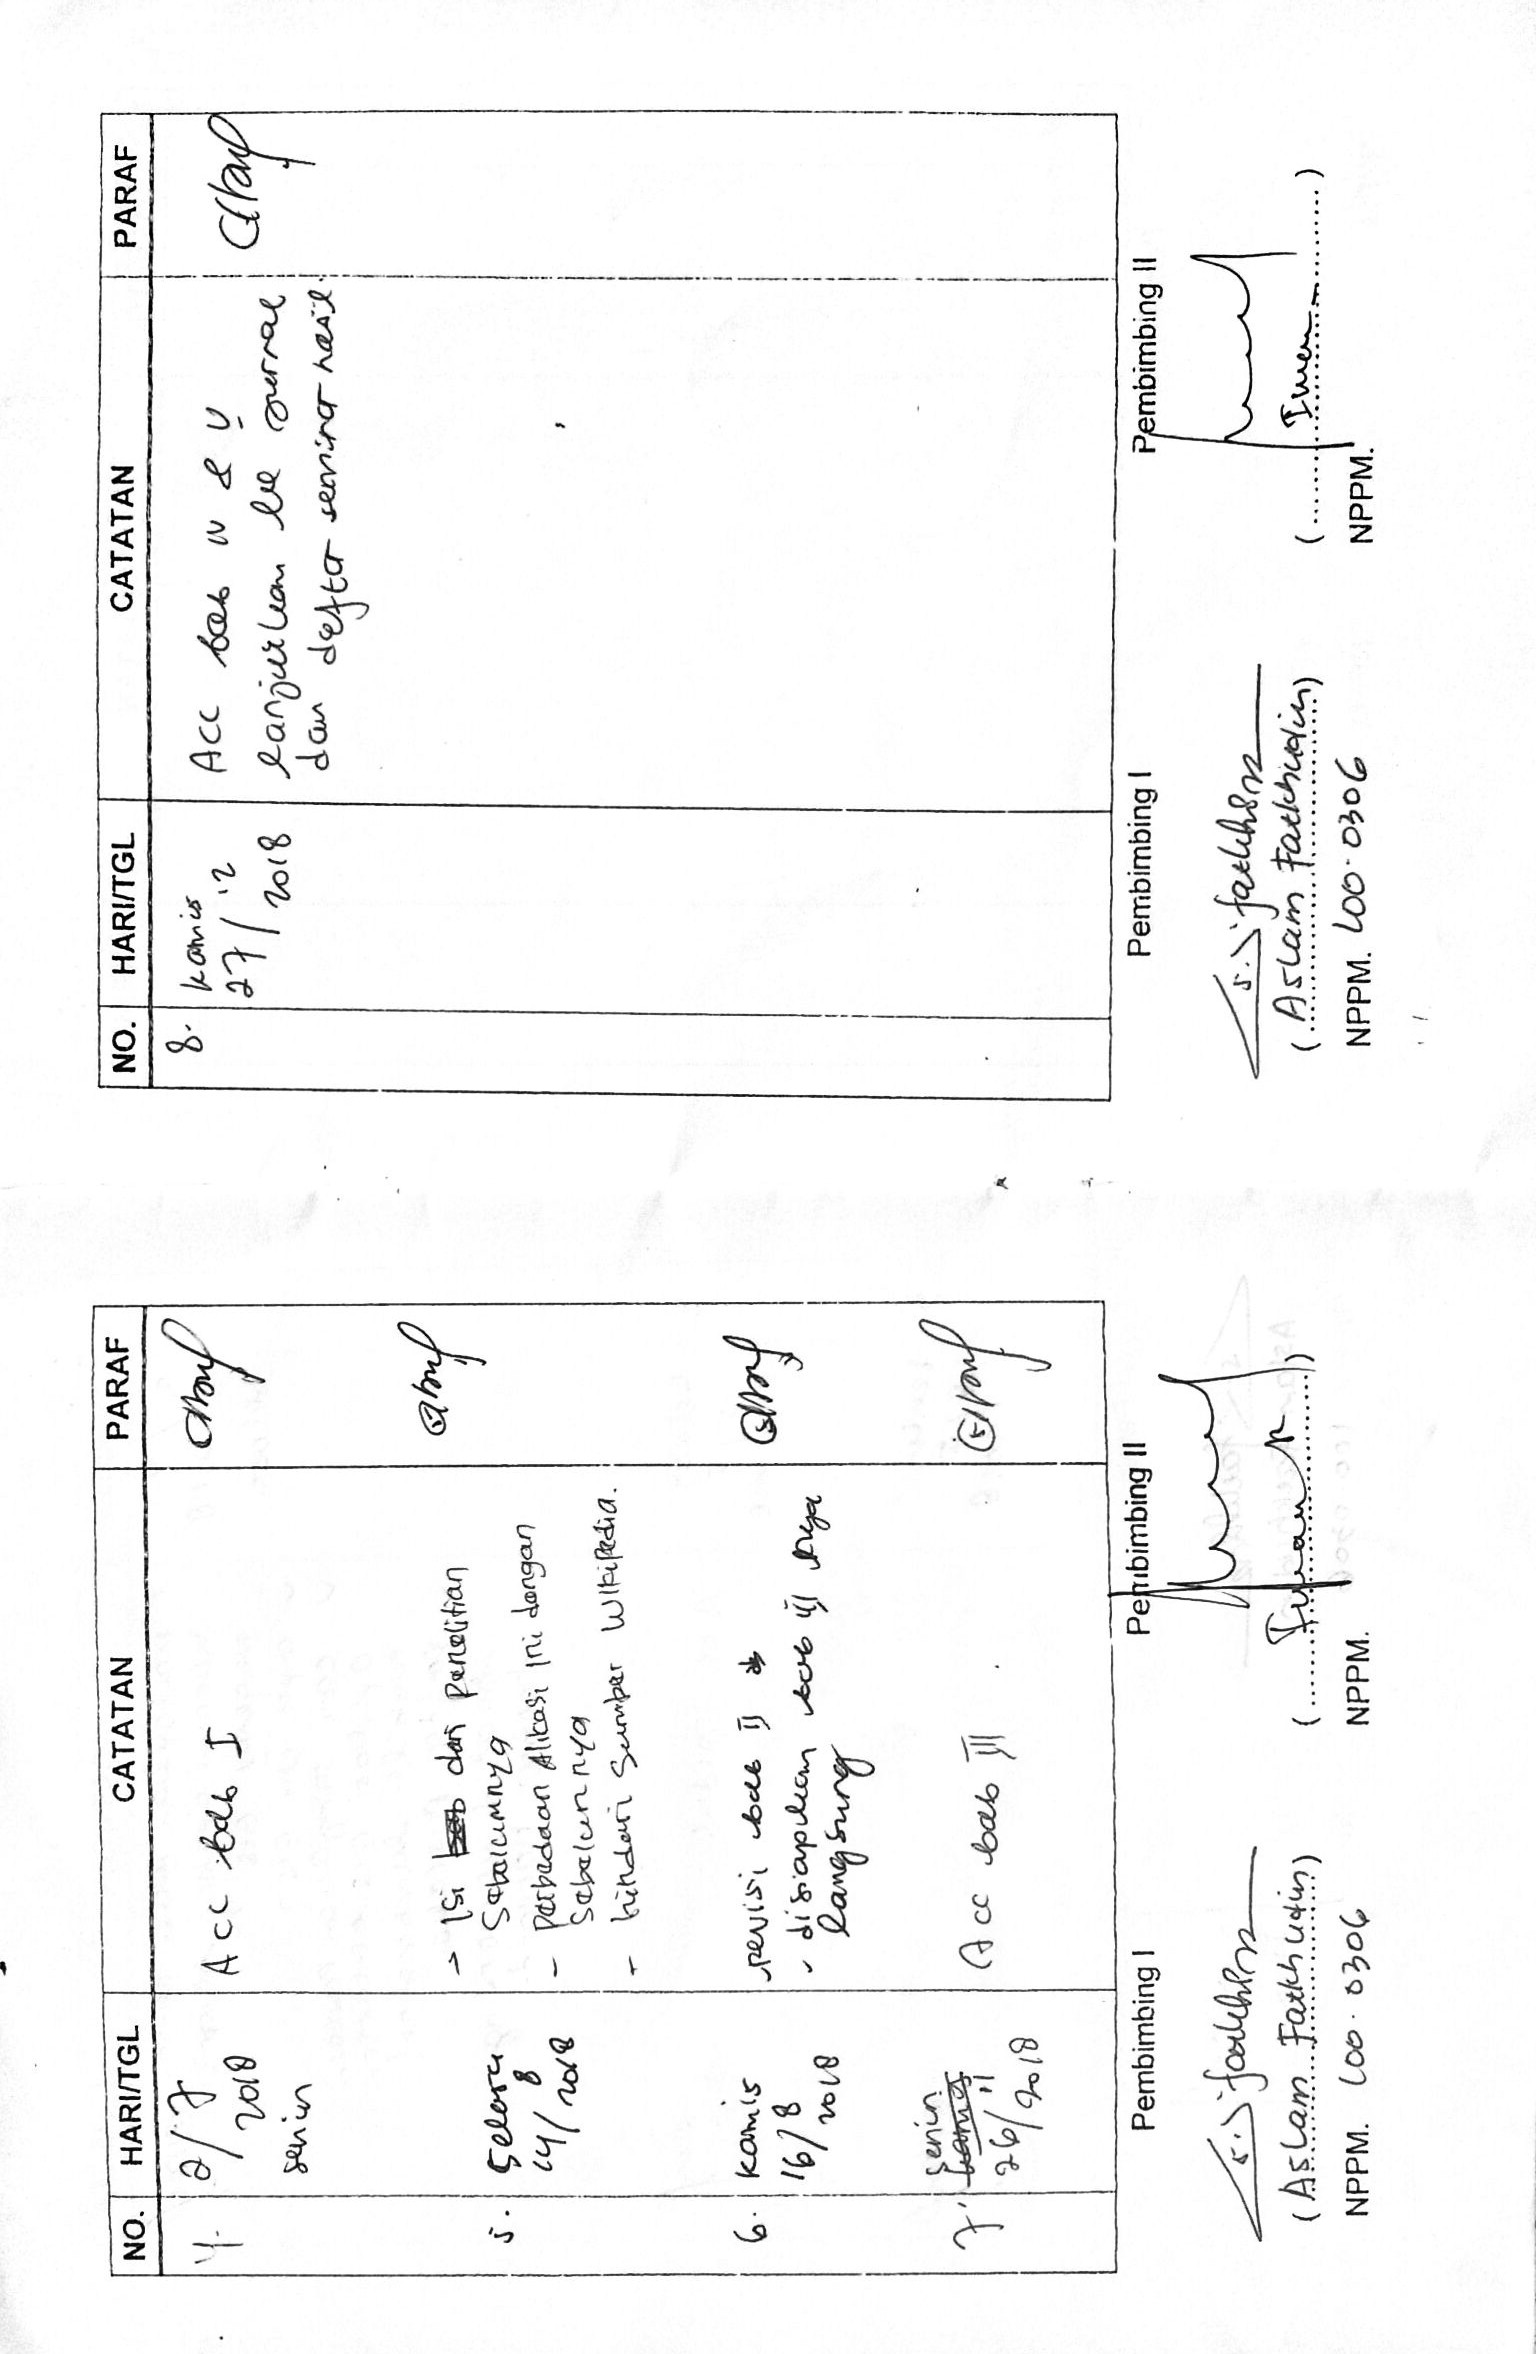 NO. HARI/TGL CATATAN PARAF
4. 2/7 2018 Acc bab I
senin
5. Selasa 14/8 2018 - Isi dari Penelitian
Sebelumnya
- Perbedaan Alikasi Ini dengan
Sebelumnya
- hindari Sumber Wikipedia.
6. kamis 16/8 2018 revisi bab II
- disiapkan bab III nya
langsung
7. senin kamis 26/11 2018 Acc bab III
Pembimbing I Pembimbing II
(Aslam Fatkhudin) (Iman )
NPPM. 100.0306 NPPM.
NO. HARI/TGL CATATAN PARAF
8. kamis 27/12 2018 Acc bab IV & V
lanjutkan ke jurnal
dan daftar seminar hasil.
Pembimbing I Pembimbing II
(Aslam Fatkhudin) (Iman )
NPPM. 100.0306 NPPM.